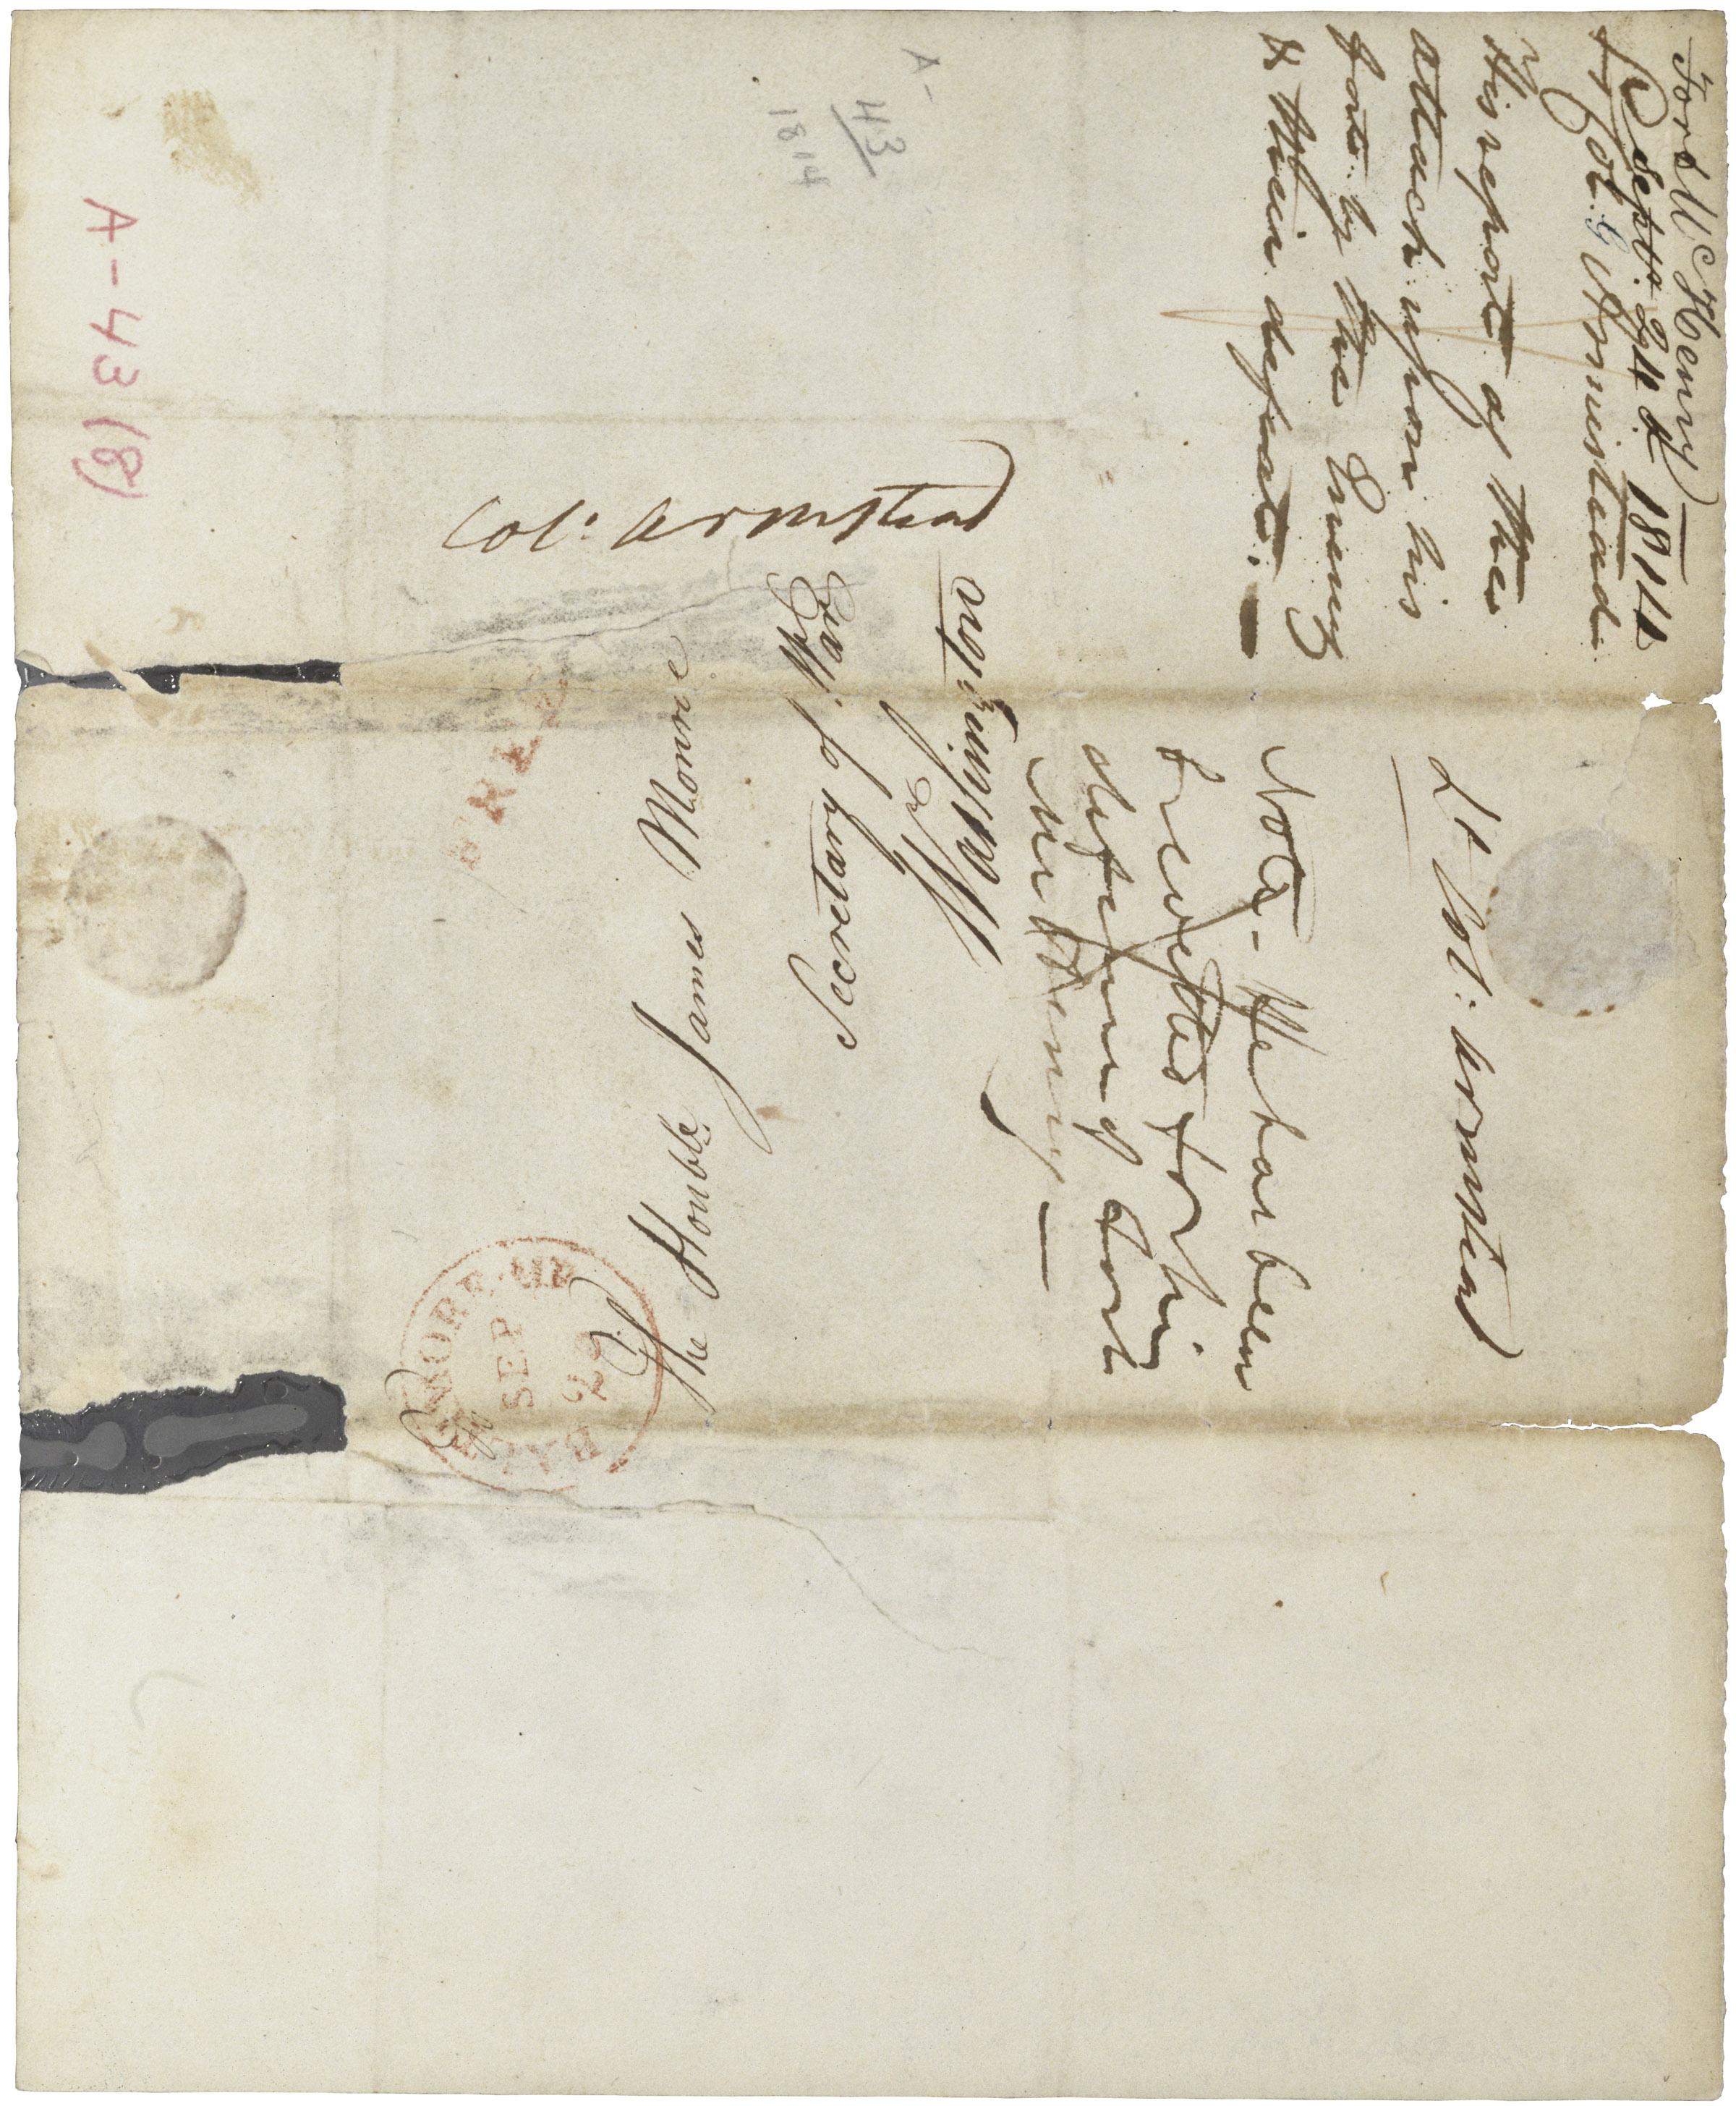 Fort McHenry
Septr. 24th. 1814
Lt Col. G Armistead
His report of the
attack upon his
forts by the Enemy
& their defeat.
Lt Col: Armstead
Note - He has been
brevetted for his
defense of Fort
McHenry —
Col: Armstead
The Honble James Monroe
Secretary of War
Washington
FREE
BALTIMORE MD
SEP
A-
43
1814
A-43 (8)